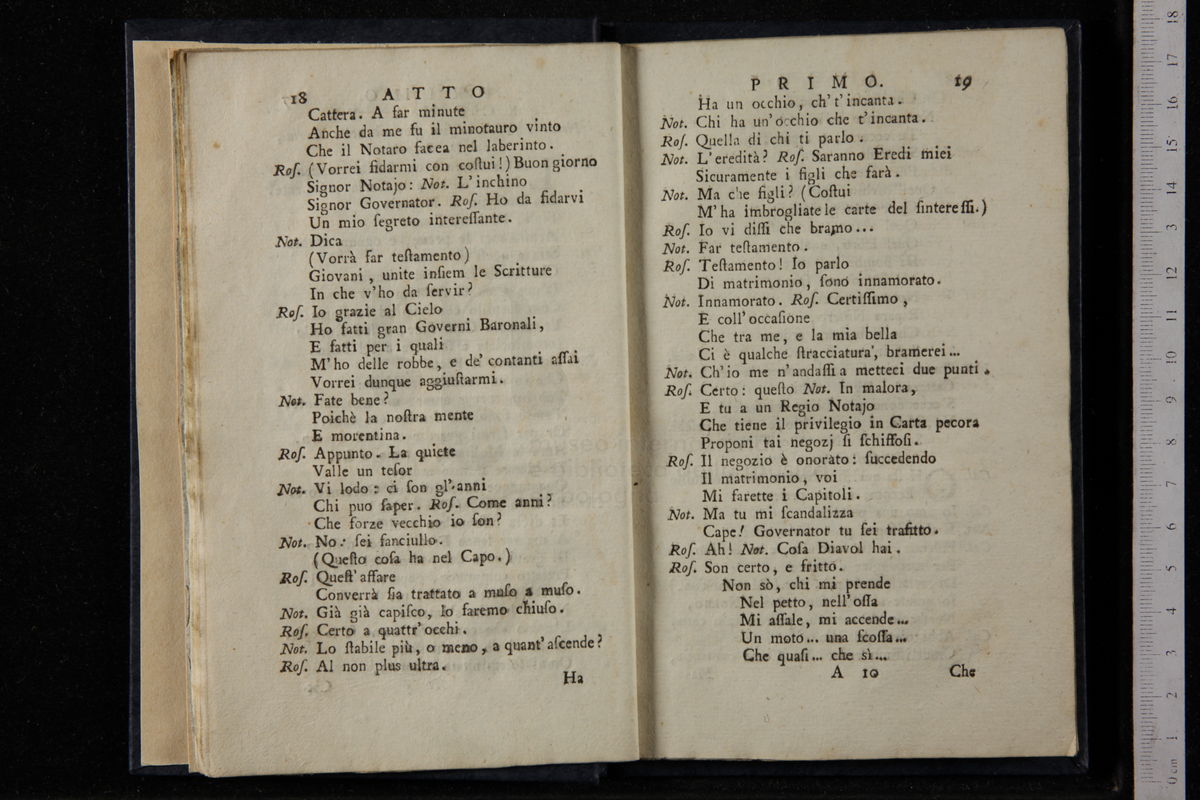 18 ATTO
Cattera. A far minute
Anche da me fu il minotauro vinto
Che il Notaro facea nel laberinto.
Roſ. (Vorrei fidarmi con coſtui!) Buon giorno
Signor Notajo: Not. L'inchino
Signor Governator. Roſ. Ho da fidarvi
Un mio ſegreto intereſſante.
Not. Dica
(Vorrà far teſtamento)
Giovani, unite inſiem le Scritture
In che v'ho da ſervir?
Roſ. Io grazie al Cielo
Ho fatti gran Governi Baronali,
E fatti per i quali
M'ho delle robbe, e de' contanti aſſai
Vorrei dunque aggiuſtarmi.
Not. Fate bene?
Poichè la noſtra mente
E morentina.
Roſ. Appunto. La quiete
Valle un teſor
Not. Vi lodo: ci ſon gl'anni
Chi puo ſaper. Roſ. Come anni?
Che forze vecchio io ſon?
Not. No: ſei fanciullo.
(Queſto coſa ha nel Capo.)
Roſ. Queſt'affare
Converrà ſia trattato a muſo a muſo.
Not. Già già capiſco, lo faremo chiuſo.
Roſ. Certo a quattr'occhi.
Not. Lo ſtabile più, o meno, a quant'aſcende?
Roſ. Al non plus ultra.
Ha
PRIMO. 19
Ha un occhio, ch't'incanta.
Not. Chi ha un'occhio che t'incanta.
Roſ. Quella di chi ti parlo.
Not. L'eredità? Roſ. Saranno Eredi miei
Sicuramente i figli che farà.
Not. Ma che figli? (Coſtui
M'ha imbrogliate le carte del ſintereſſi.)
Roſ. Io vi diſſi che bramo...
Not. Far teſtamento.
Roſ. Teſtamento! Io parlo
Di matrimonio, ſono innamorato.
Not. Innamorato. Roſ. Certiſſimo,
E coll'occaſione
Che tra me, e la mia bella
Ci è qualche ſtracciatura, bramerei...
Not. Ch'io me n'andaſſi a metteci due punti.
Roſ. Certo: queſto Not. In malora,
E tu a un Regio Notajo
Che tiene il privilegio in Carta pecora
Proponi tai negozj ſi ſchiffoſi.
Roſ. Il negozio è onorato: ſuccedendo
Il matrimonio, voi
Mi farette i Capitoli.
Not. Ma tu mi ſcandalizza
Cape! Governator tu ſei trafitto.
Roſ. Ah! Not. Coſa Diavol hai.
Roſ. Son certo, e fritto.
Non sò, chi mi prende
Nel petto, nell'oſſa
Mi aſſale, mi accende...
Un moto... una ſcoſſa...
Che quaſi... che sì...
A 10 Che